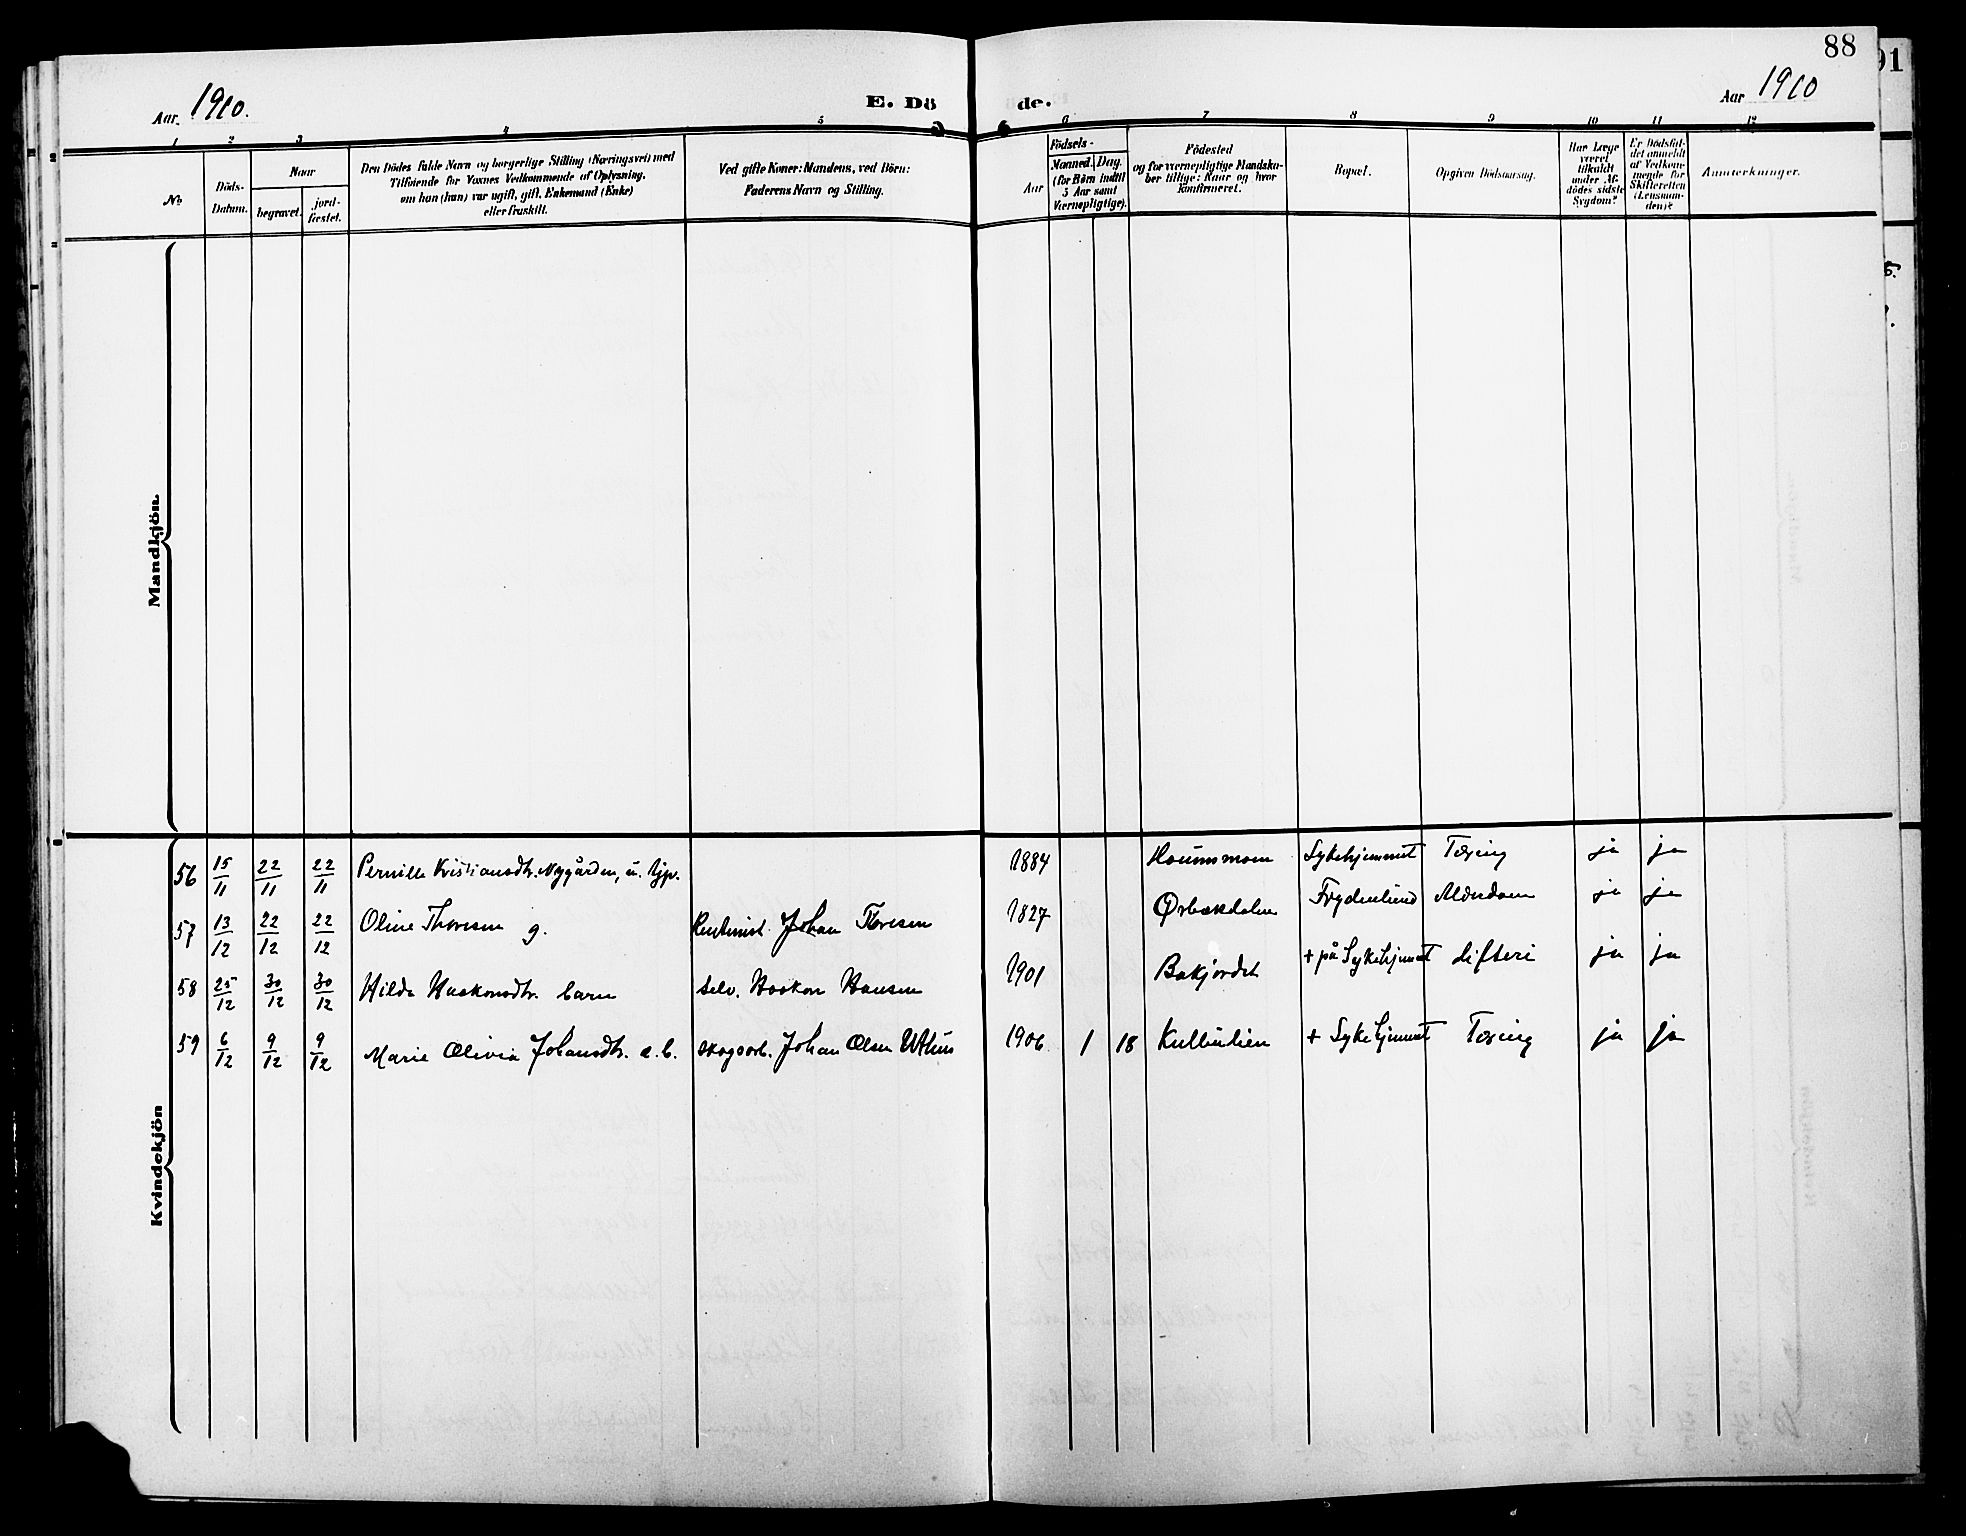 88
91
Aar 1910.
E. Dö
de.
Aar 1910
1 2 3 4 5 6 7 8 9 10 11 12
No
Döds-
Datum.
Naar
begravet.
jord-
fæstet.
Den Dödes fulde Navn og borgerlige Stilling (Næringsvei) med
Tilföiende for Voxnes Vedkommende af Oplysning,
om han (hun) var ugift, gift, Enkemand (Enke)
eller fraskilt.
Ved gifte Koner: Mandens, ved Börn:
Faderens Navn og Stilling.
Födsels-
Aar
Maaned. Dag.
(for Börn indtil
5 Aar samt
Værnepligtige).
Födested
og for værnepligtige Mandska-
ber tillige: Naar og hvor
Konfirmeret.
Bopæl.
Opgiven Dödsaarsag.
Har Læge
været
tilkaldt
under Af-
dödes sidste
Sygdom?
Er Dödsfal-
det anmeldt
af Vedkom-
mende for
Skifteretten
(Lensman-
den)?
Anmærkninger.
Mandkjön.
Kvindekjön
56 15/11 22/11 22/11 Pernille Kristiansdtr. Nygården, u. 1884 Sykehjemmet Tæring ja ja
57 13/12 22/12 22/12 Oline Thoresen g. Johan Toresen 1827 Ørbækdalen Frydenlund Alderdom ja ja
58 25/12 30/12 30/12 Hilda Haakonsdtr. barn selv. Haakon Hansen 1901 Bakjordet + på Sykehjemmet difteri ja ja
59 6/12 9/12 9/12 Marie Olivia Johansdtr. e. b. skogsarb. Johan Olsen 1906 1 18 + Sykehjemmet Tæring ja ja